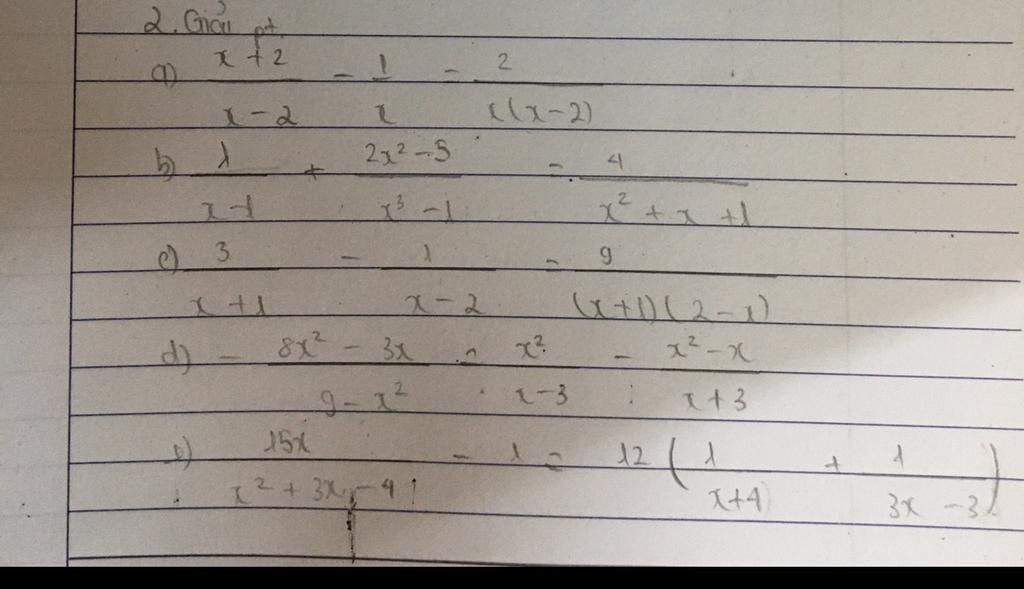 2. Giải pt
a) (x + 2)/(x - 2) - 1/x = 2/(x(x - 2))
b) 1/(x - 1) + (2x² - 5)/(x³ - 1) = 4/(x² + x + 1)
c) 3/(x + 1) - 1/(x - 2) = 9/((x + 1)(2 - x))
d) - (8x² - 3x)/(9 - x²) = x²/(x - 3) - (x² - x)/(x + 3)
e) 15x/(x² + 3x - 4) - 1 = 12 (1/(x + 4) + 1/(3x - 3))